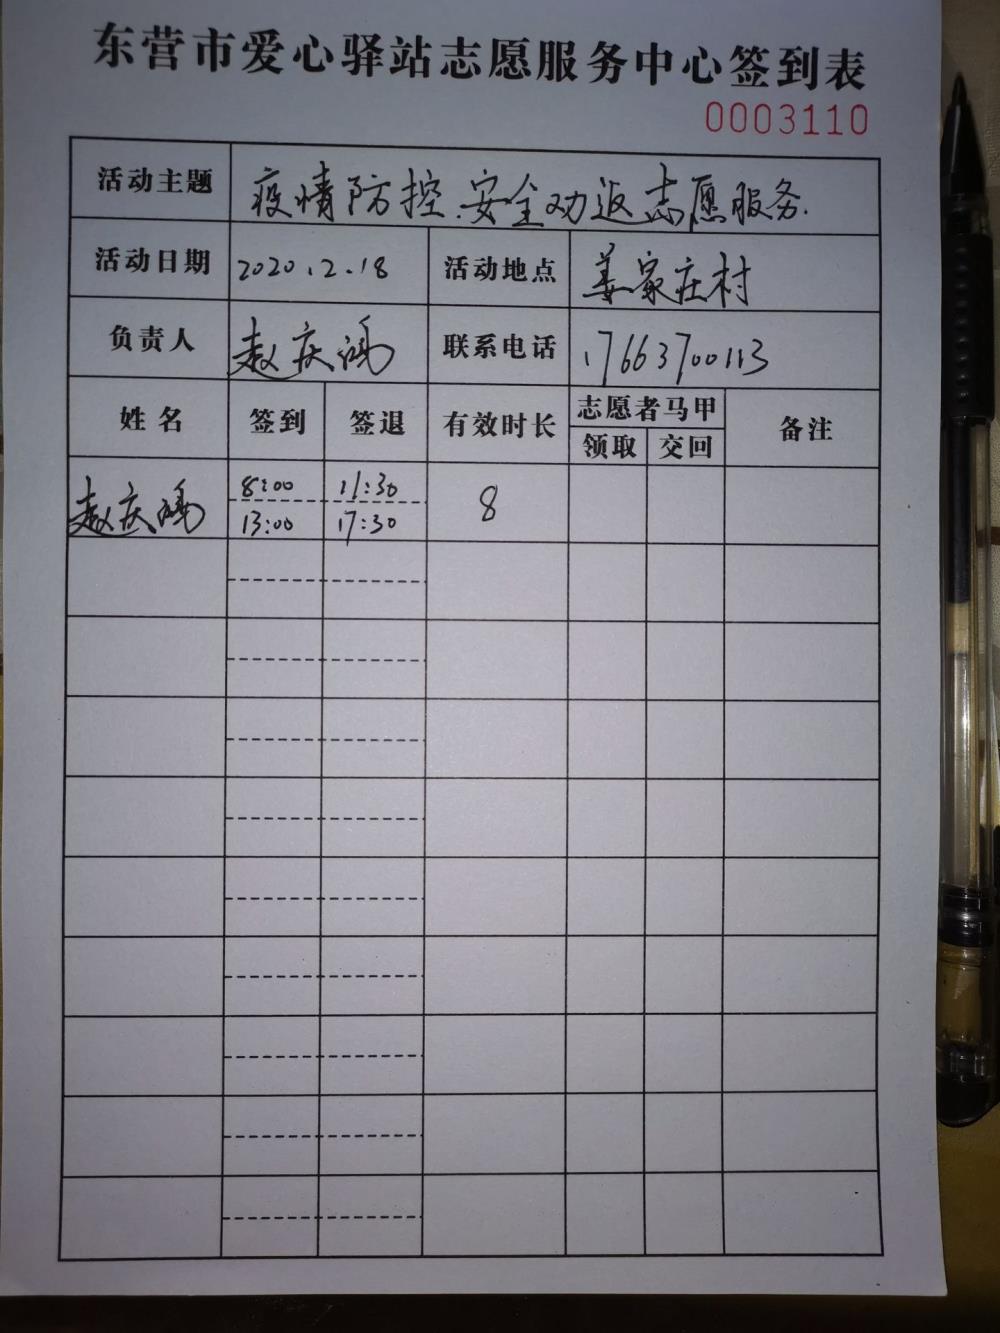 东营市爱心驿站志愿服务中心签到表
0003110
活动主题 疫情防控.安全劝返志愿服务.
活动日期 2020.2.18 活动地点 姜家庄村
负责人 赵庆鸿 联系电话 17663700113
姓名 签到 签退 有效时长 志愿者马甲 备注
领取 交回
赵庆鸿 8:00 11:30 8
13:00 17:30